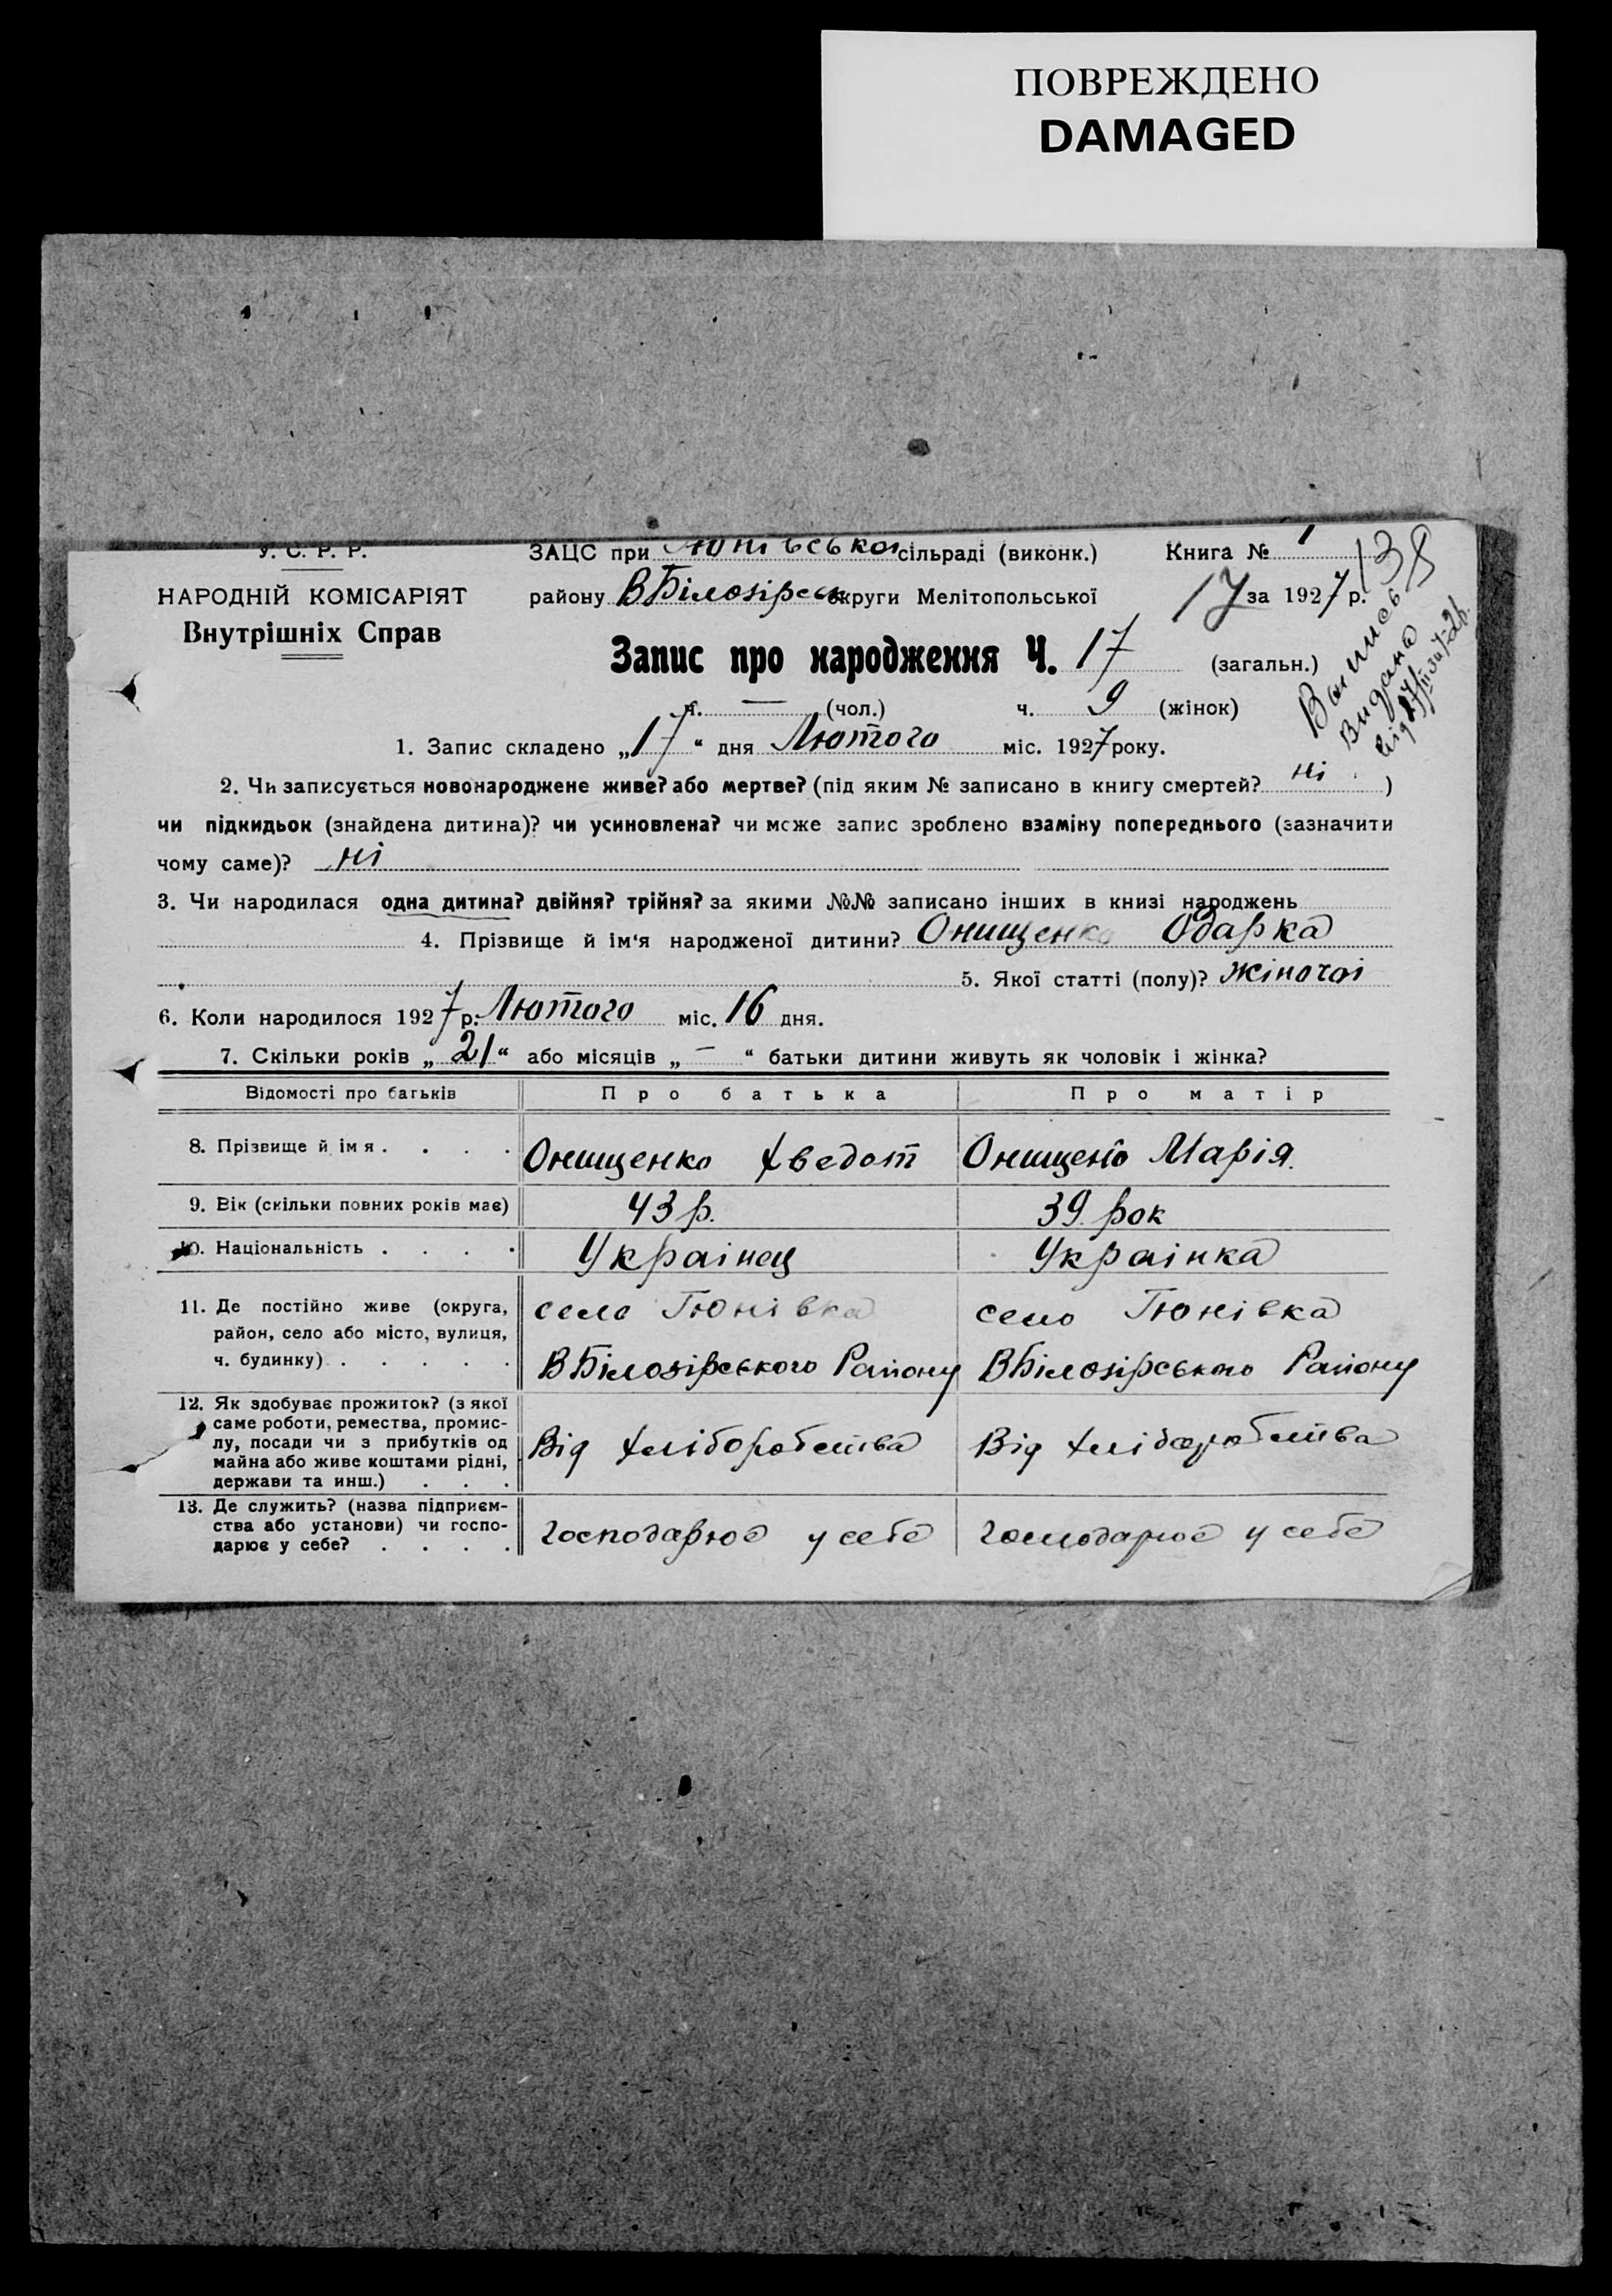 ПОВРЕЖДЕНО
DAMAGED
У. С. Р. Р.
НАРОДНІЙ КОМІСАРІЯТ
Внутрішніх Справ
ЗАЦС при Тюнівської сільраді (виконк.) Книга № 1
району ВБілозірськ округи Мелітопольської 17 за 1927 р.
138
Запис про народження Ч. 17 (загальн.)
ч. — (чол.) ч. 9 (жінок)
Випись
видано
від
1. Запис складено „17“ дня Лютого міс. 1927 року.
2. Чи записується новонароджене живе? або мертве? (під яким № записано в книгу смертей? ні )
чи підкидьок (знайдена дитина)? чи усиновлена? чи може запис зроблено взаміну попереднього (зазначити
чому саме)? ні
3. Чи народилася одна дитина? двійня? трійня? за якими №№ записано інших в книзі народжень
4. Прізвище й ім‘я народженої дитини? Онищенко Одарка
5. Якої статті (полу)? жіночоі
6. Коли народилося 1927 р. Лютого міс. 16 дня.
7. Скільки років „21“ або місяців „—“ батьки дитини живуть як чоловік і жінка?
Відомості про батьків Про батька Про матір
8. Прізвище й ім я . . . . Онищенко Хведот Онищенко Марія.
9. Вік (скільки повних років має) 43 р. 39 рок
10. Національність . . . . Украінец Украінка
11. Де постійно живе (округа,
район, село або місто, вулиця,
ч. будинку) . . . . .
село Тюнівка
ВБілозірського Району
село Тюнівка
ВБілозірського Району
12. Як здобуває прожиток? (з якої
саме роботи, ремества, промис-
лу, посади чи з прибутків од
майна або живе коштами рідні,
держави та инш.) . . .
Від хліборобства
Від хліборобства
13. Де служить? (назва підприєм-
ства або установи) чи госпо-
дарює у себе? . . . .
господарює у себе
господарює у себе